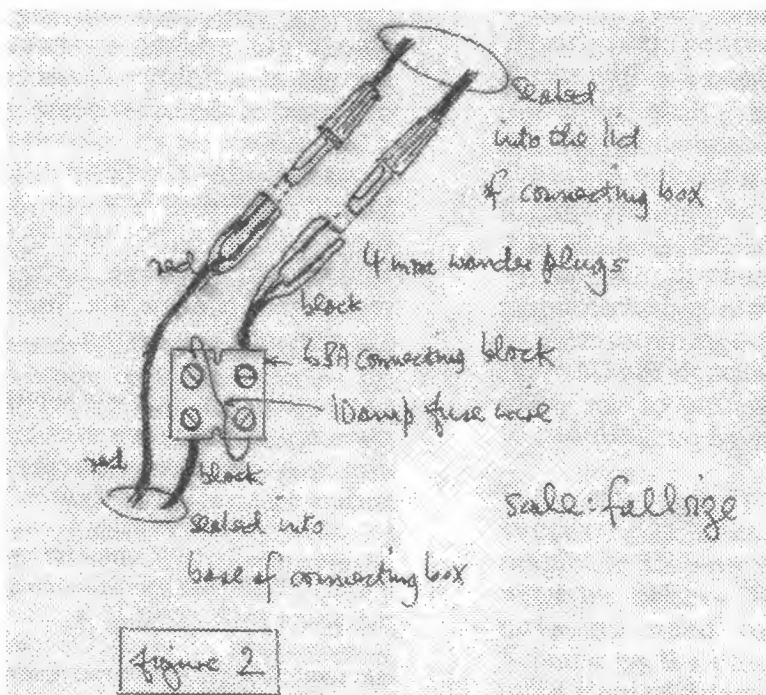 Sealed
into the lid
of connecting box
red
4 mm wander plugs
block
6BA connecting block
10 amp fuse wire
red
block
sealed into
base of connecting box
scale: full size
figure 2